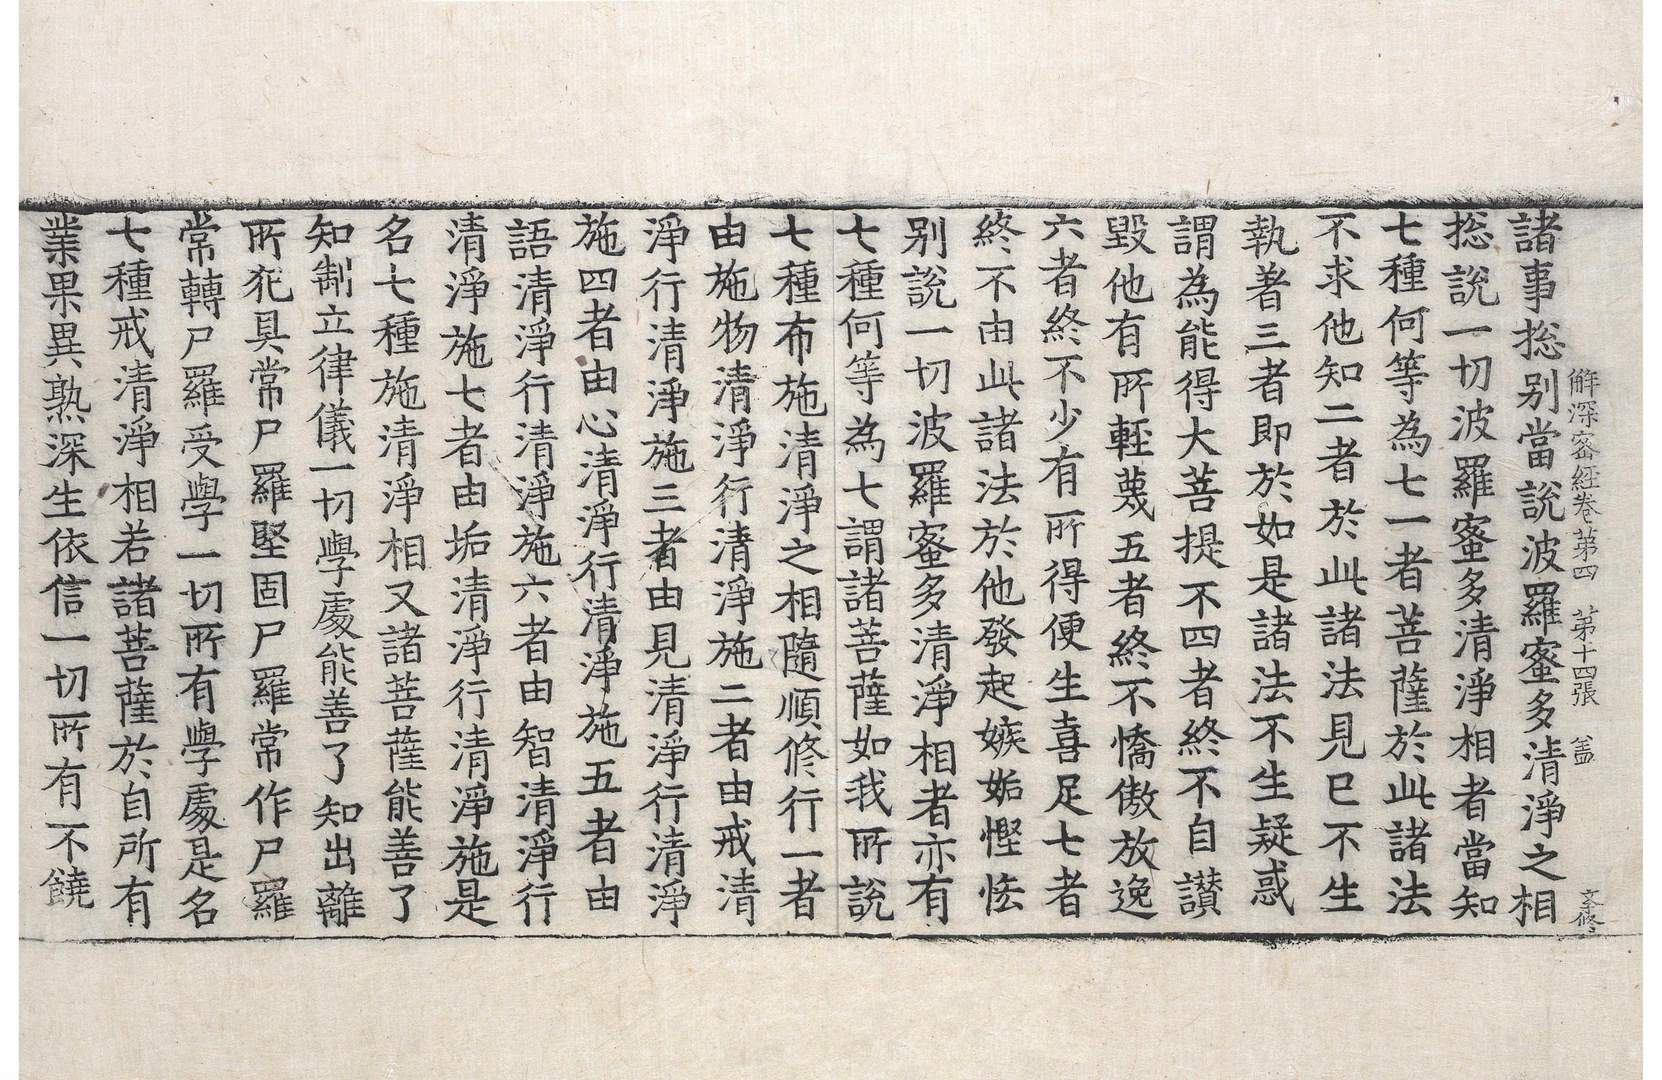 解深密經卷第四 第十四張 盖 文修
諸事揔別當說波羅蜜多清淨之相
揔說一切波羅蜜多清淨相者當知
七種何等為七一者菩薩於此諸法
不求他知二者於此諸法見已不生
執著三者即於如是諸法不生疑惑
謂為能得大菩提不四者終不自讃
毀他有所輕蔑五者終不憍傲放逸
六者終不少有所得便生喜足七者
終不由此諸法於他發起嫉妬慳悋
別說一切波羅蜜多清淨相者亦有
七種何等為七謂諸菩薩如我所說
七種布施清淨之相隨順修行一者
由施物清淨行清淨施二者由戒清
淨行清淨施三者由見清淨行清淨
施四者由心清淨行清淨施五者由
語清淨行清淨施六者由智清淨行
清淨施七者由垢清淨行清淨施是
名七種施清淨相又諸菩薩能善了
知制立律儀一切學處能善了知出離
所犯具常尸羅堅固尸羅常作尸羅
常轉尸羅受學一切所有學處是名
七種戒清淨相若諸菩薩於自所有
業果異熟深生依信一切所有不饒